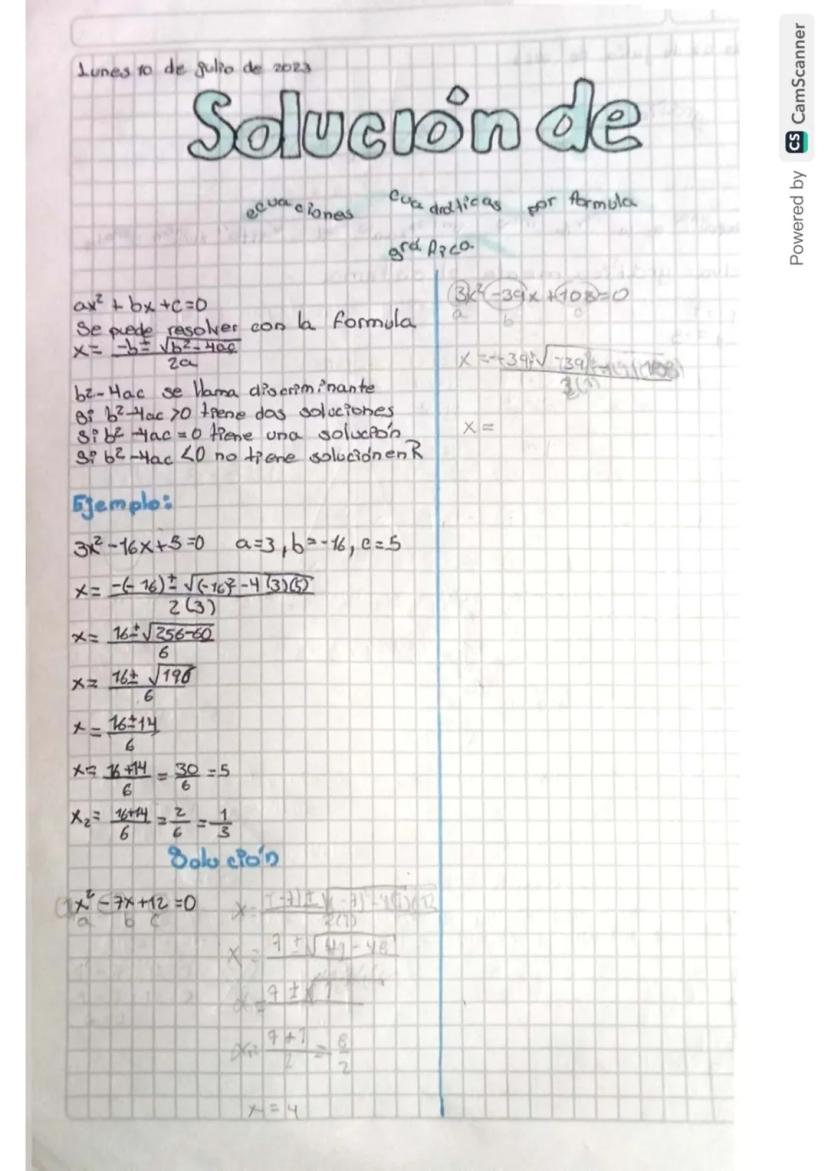 Lunes 10 de julio de 2023
Solución de
ecuaciones cuadráticas por formula
gráfica.
ax² + bx + c = 0
Se puede resolver con la formula
x = -b ± √b² - 4ac / 2a
b² - 4ac se llama discriminante
Si b² - 4ac > 0 tiene dos soluciones
Si b² - 4ac = 0 tiene una solución
Si b² - 4ac < 0 no tiene solución en R
Ejemplo:
3x² - 16x + 5 = 0 a = 3, b = -16, c = 5
x = -(-16) ± √(-16)² - 4(3)(5) / 2(3)
x = 16 ± √256-60 / 6
x = 16 ± √196 / 6
x = 16 ± 14 / 6
x = 16 + 14 / 6 = 30 / 6 = 5
x₂ = 16+14 / 6 = 2 / 6 = 1 / 3
Solución
1x² - 7x + 12 = 0
a b c
x = 7 ± √49 - 48
x = 7 ± √1
x = 7 + 1 / 2 = 8 / 2
x = 4
3x² - 39x + 108 = 0
a b c
x =
Powered by CS CamScanner